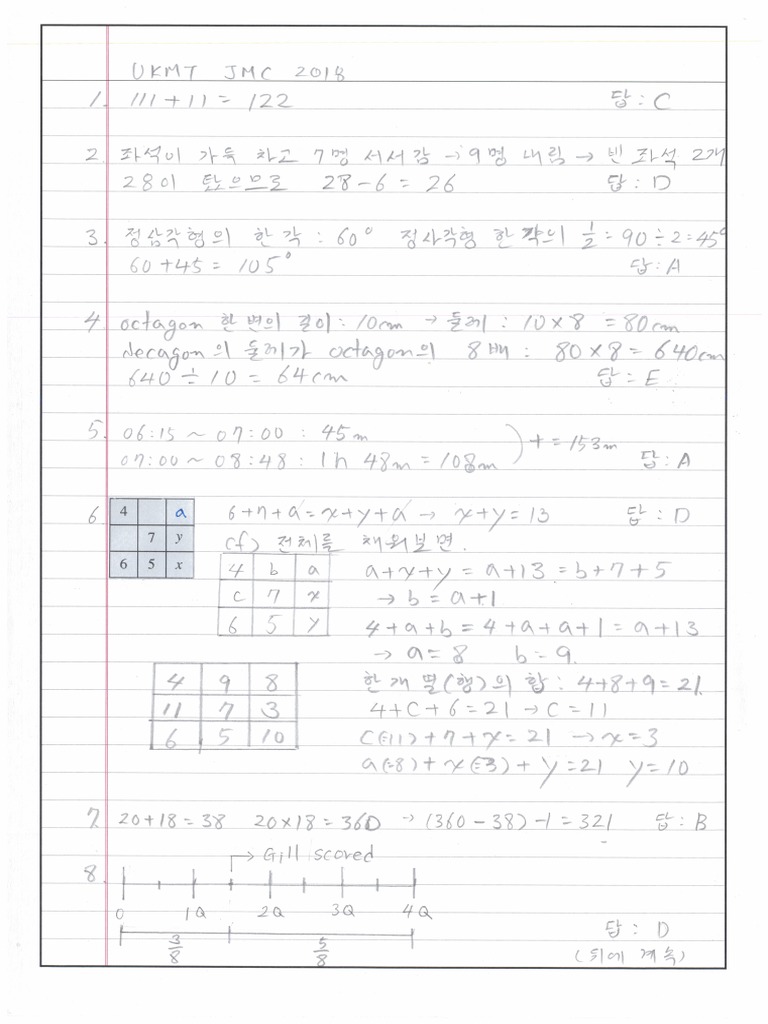 UKMT JMC 2018
1. 111+11 = 122 답: C
2. 좌석이 가득 차고 7명 서서감 → 9명 내림 → 빈 좌석 2개
28이 탔으므로 28-6 = 26 답: D
3. 정삼각형의 한 각: 60° 정사각형 한 각의 1/2 = 90÷2=45°
60+45 = 105° 답: A
4 octagon 한 변의 길이: 10cm → 둘레: 10×8 = 80cm
decagon의 둘레가 octagon의 8배: 80×8 = 640cm
640 ÷ 10 = 64cm 답: E
5. 06:15 ~ 07:00 : 45m
07:00 ~ 08:48 : 1h 48m = 108m ) + = 153m 답: A
6. 4 a 6+7+a = x+y+a → x+y = 13 답: D
7 y (cf) 전체를 채워보면.
6 5 x
4 b a a+x+y = a+13 = b+7+5
c 7 x → b = a+1
6 5 y 4+a+b = 4+a+a+1 = a+13
→ a=8 b=9.
4 9 8 한 개 열(행)의 합: 4+8+9=21.
11 7 3 4+C+6=21 → C=11
6 5 10 C(=11)+7+x=21 → x=3
a(=8)+x(=3)+y=21 y=10
7. 20+18 = 38 20×18 = 360 → (360-38)-1 = 321 답: B
→ Gill scored
8.
0 1Q 2Q 3Q 4Q
3/8 5/8 답: D
(뒤에 계속)